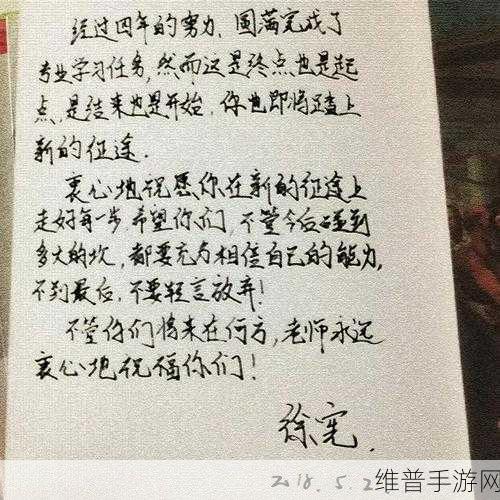 经过四年的努力，圆满完成了
专业学习任务，然而这是终点也是起
点，是结束也是开始，你也即将踏上
新的征途．
衷心地祝愿你在新的征途上
走好每一步，希望你们，不管今后碰到
多大的坎，都要充分相信自己的能力，
不到最后，不要轻言放弃！
不管你们将来在何方，老师永远
衷心地祝福你们！
徐宪．
2018.5.2
维普手游网